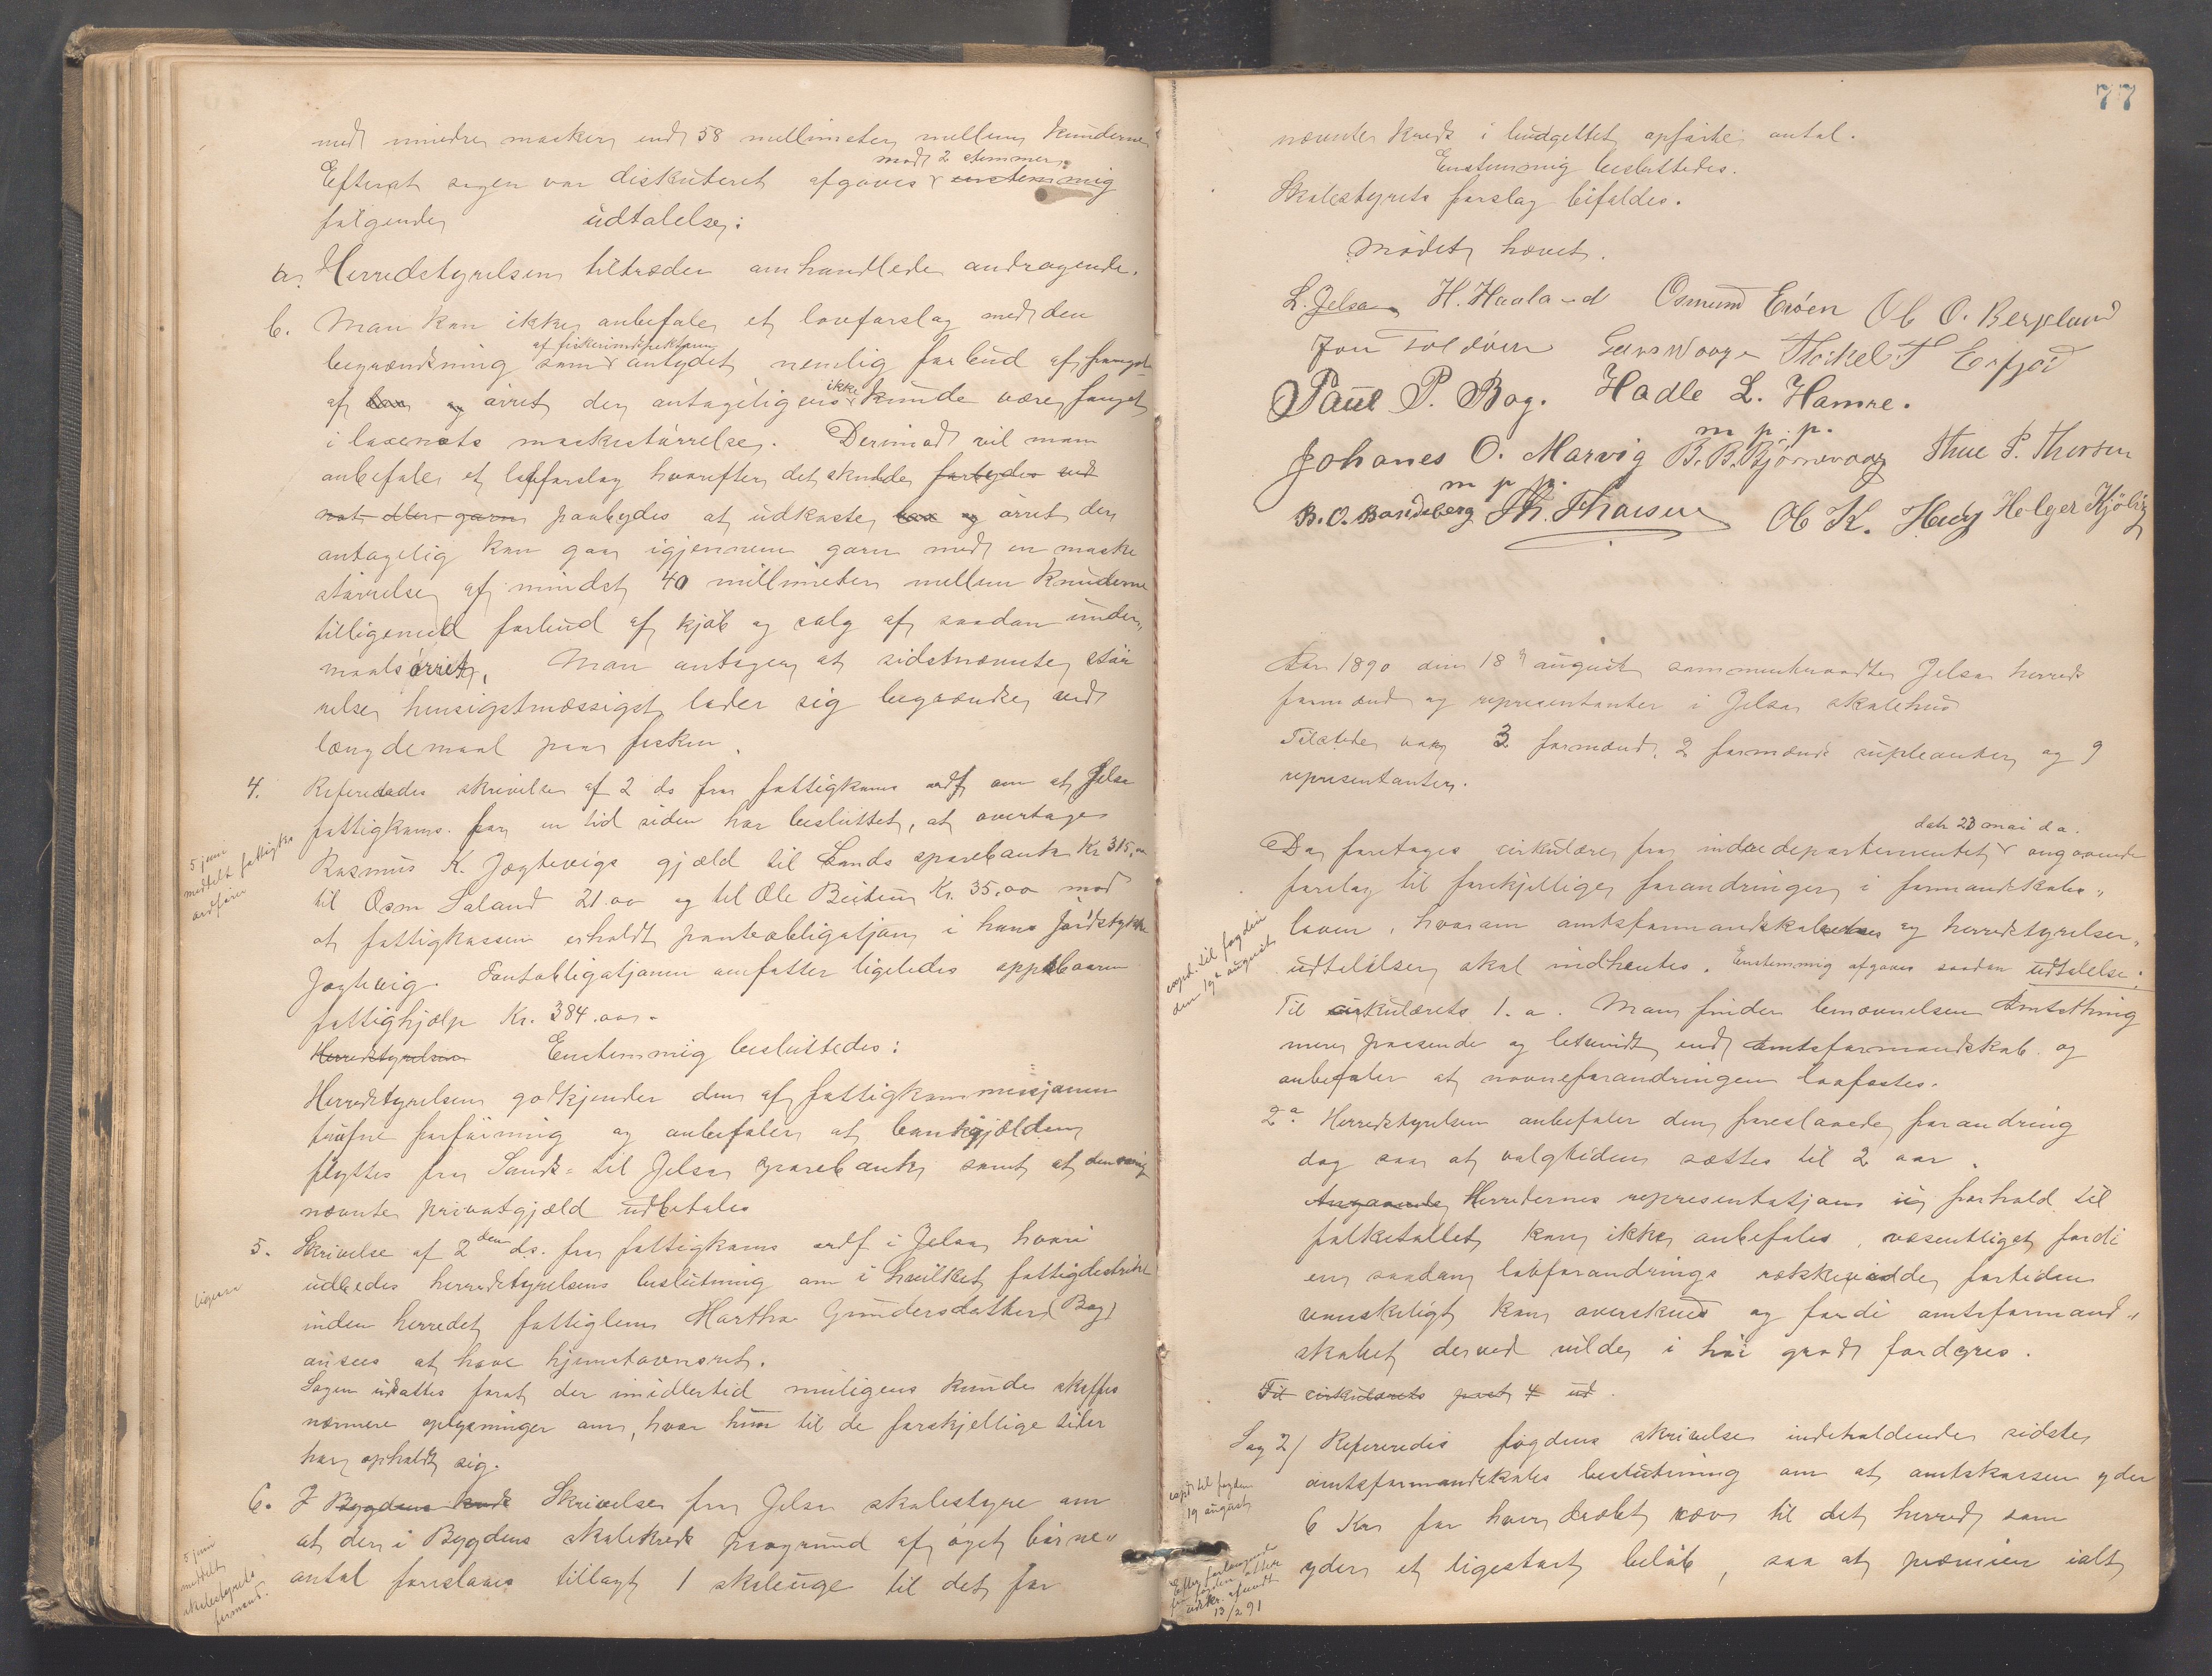 med mindre masker end 58 millimeter mellem knuderne
Efterat sagen var diskuteret afgaves mod 2 stemmer enstemmig
følgende udtalelse:
a. Herredstyrelsen tiltræder omhandlede andragende.
b. Man kan ikke anbefale et lovforslag med den
begrændsning som af fiskeriinspektøren antydet nemlig forbud af fangst
af lax og ørret der antageligvis ikke kunde være fanget
i laxenots maskestørrelse. Derimod vil man
anbefale et lovforslag hvorefter det skulde forbydes ved
not eller garn paabydes at udkaste lax og ørret der
antagelig kan gaa igjennem garn med en maske
størrelse af mindst 40 millimeter mellem knuderne
tilligemed forbud af kjøb og salg af saadan under,,
maalsørret. Man antager at sidstnævnte stør
relse hensigtmæssigst lader sig begrændse ved
længdemaal paa fisken.
4. Refereredes skrivelse af 2 ds fra fattigkoms ordf om at Jelsa
fattigkoms. for en tid siden har besluttet, at overtage
Rasmus K. Jogtevigs gjæld til Sands sparebank Kr 315,00
til Osm Saland 21.00 og til Ole Beitun Kr. 35.00 mod
at fattigkassen erholdt panteobligatjon i hans jordstykke
Jogtevig. Pantobligatjonen omfatter ligeledes oppebaaren
fattighjælp Kr. 384.00.-
Herredstyrelsen Enstemmig besluttedes:
Herredstyrelsen godkjender den af fattigkommissjonen
trufne forføining og anbefaler at bankgjælden
flyttes fra Sands til Jelsa sparebank samt at den øvrig
nævnte privatgjæld udbetales
5. Skrivelse af 2den ds. fra fattigkoms ordf i Jelsa hvori
udbedes herredstyrelsens beslutning om i hvilket fattigdistrikt
inden herredet fattiglem Martha Gundersdatter (Bog)
ansees at have hjemstavnsret.
Sagen udsattes forat der imidlertid muligens kunde skaffes
nærmere oplysninger om, hvor hun til de forskjellige tider
har opholdt sig.
6. I Bygdens kreds Skrivelse fra Jelsa skolestyre om
at der i Bygdens skolekreds paagrund af øget børne,,
antal foreslaaes tillagt 1 skoleuge til det for
5 juni
meddelt fattigko
ordfører
ligesaa
5 juni
meddelt
skolestyrets
formand.
77
nævnte kreds i budgettet opførte antal.
Enstemmig besluttedes.
Skolestyrets forslag bifaldes.
Mødet hævet.
L. Jelsa H. Haaland Osmund Erøen Ole O. Bergelund
Jon Foldøen Thorkel T Erfjord
Paul P. Bog. Hadle L. Hamre.
m p. p.
Johanes O. Marvig B. B. Bjørnevaag Thue P. Thorsen
m p p.
B. O. Bandeberg Th. Thorsen Ole K. Hug Holger Kjølvig
Aar 1890 den 18de august sammentraadte Jelsa herreds
formænd og representanter i Jelsa skolehus
Tilstede var 3 formænd, 2 formænds supleanter og 9
representanter.
dat 20 mai d a.
Da foretages cirkulære fra indredepartementet angaaende
forslag til forskjellige forandringer i formandskabs,,
loven, hvorom amtsformandskabernes og herredstyrelser,,
udtalelser skal indhentes. Enstemmig afgaves saadan udtalelse:
Til cirkulærets 1. a. Man finder benævnelsen Amtsthing
mere passende og letvindt end Amtsformandskab og
anbefaler at navneforandringen lovfæstes.
2a Herredstyrelsen anbefaler den foreslaaede forandring
dog saa at valgtiden sættes til 2 aar.
Angaaende Herredernes representatjon i forhold til
folketallet kan ikke anbefales, væsentligst fordi
en saadan lovforandrings rækkevidde fortiden
vanskeligt kan overskues og fordi amtsformand,,
skabet derved vilde i høi grad fordyres.
Til cirkulærets post 4 ud.
Sag 2) Refereredes fogdens skrivelse indeholdende sidste
amtsformandskabs beslutning om at amtskassen yder
6 Kr for hver dræbt ræv til det herred som
yder et ligestort beløb, saa at præmien ialt
exped. til fogden
den 19de august
exped til fogden
19 august
Efter forlangende
fra fogden atter
udskr. afsendt
13/2 91